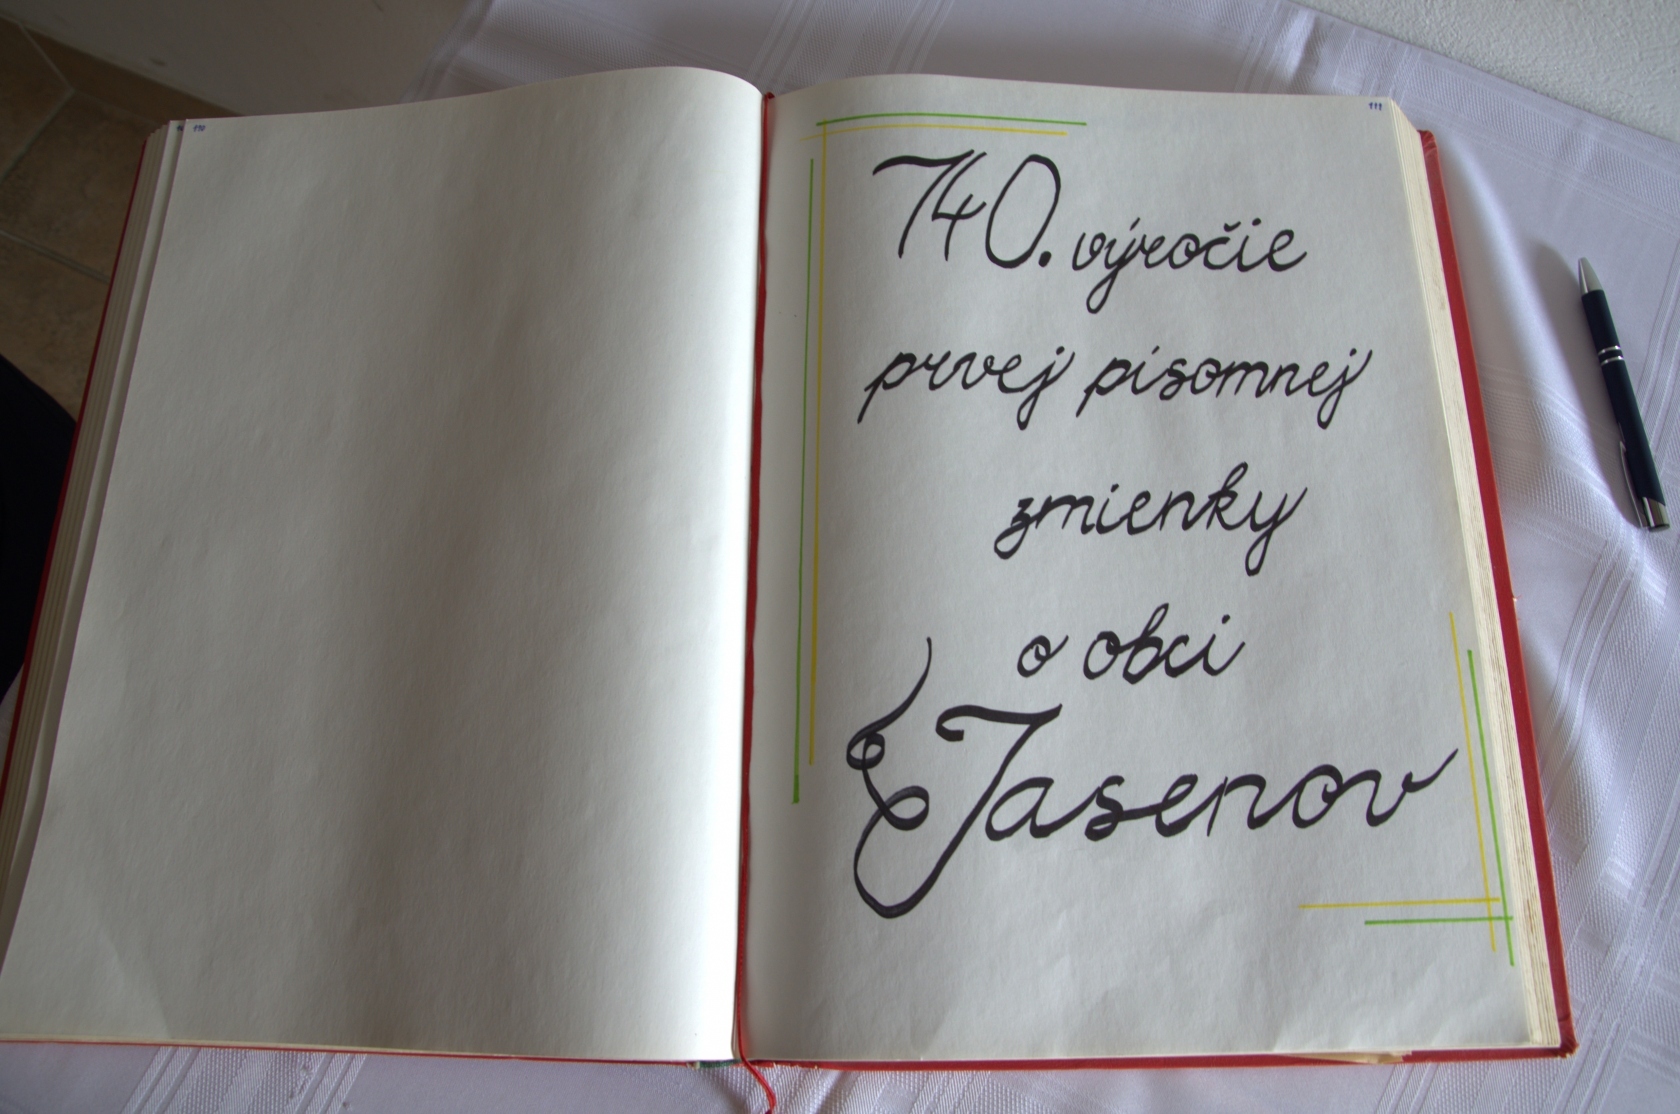 110
111
740. výročie
prvej písomnej
zmienky
o obci
Jasenov